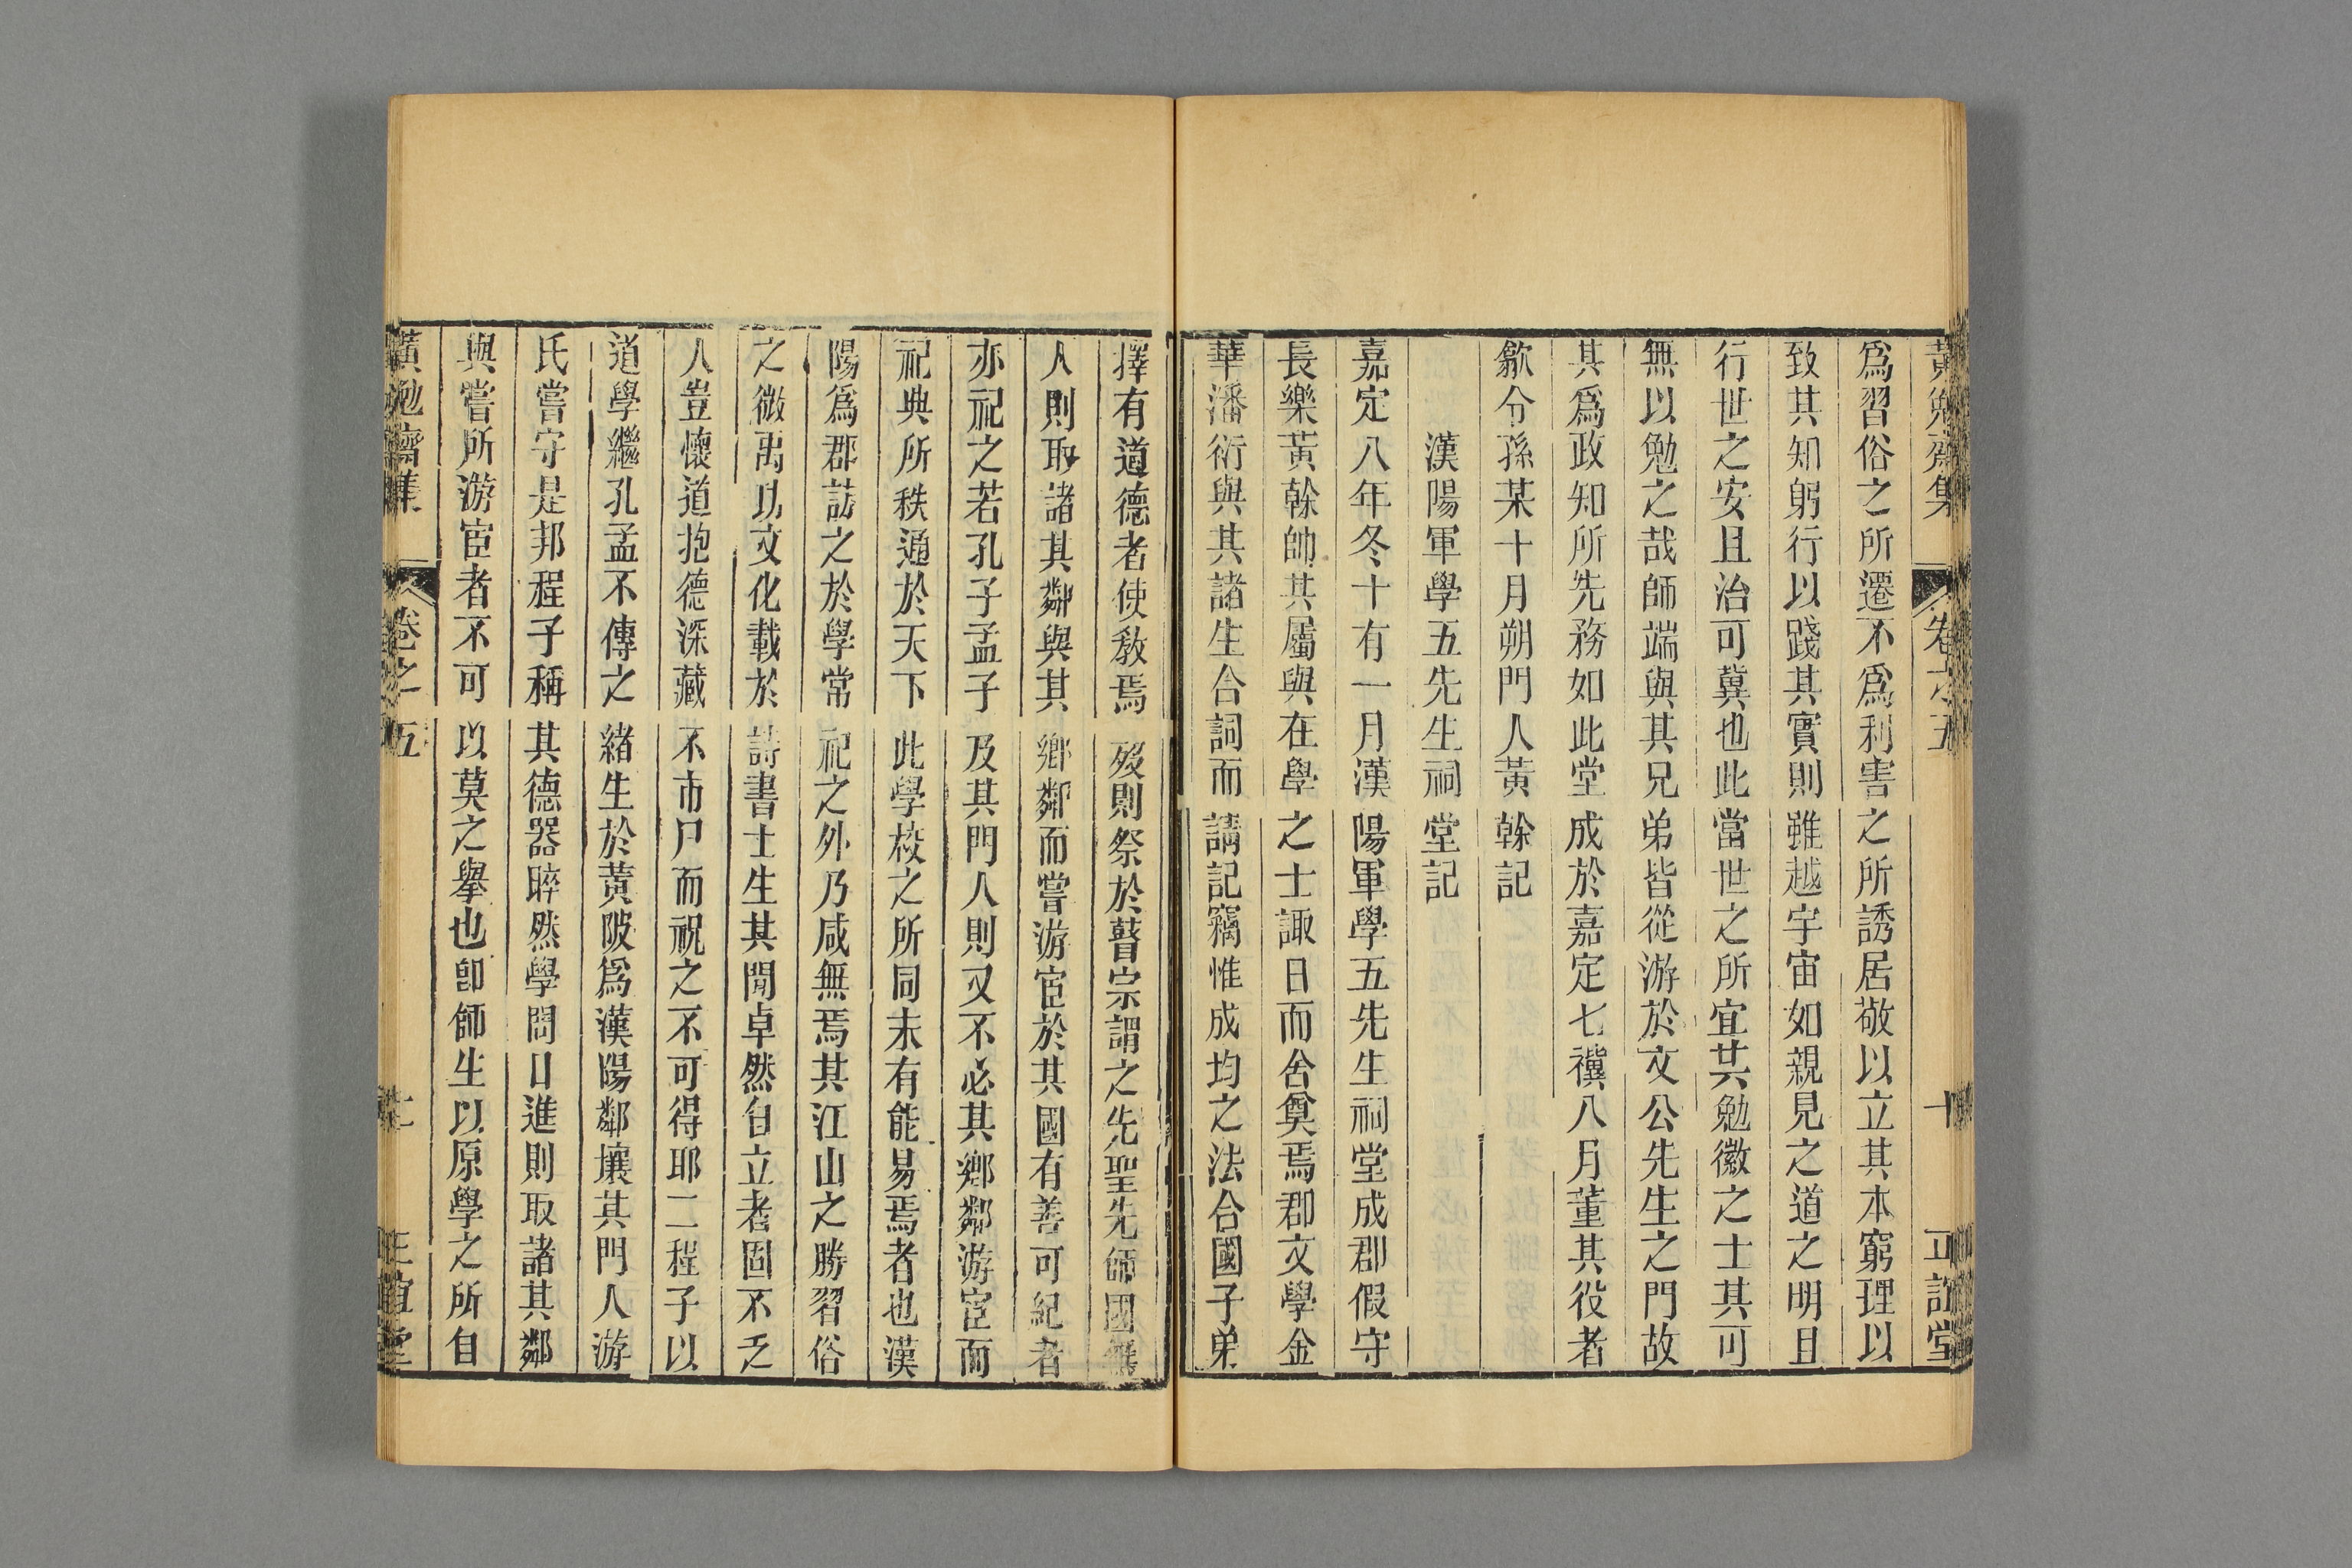 黃勉齋集 卷之五 十 正誼堂
爲習俗之所遷不爲利害之所誘居敬以立其本窮理以
致其知躬行以踐其實則雖越宇宙如親見之道之明且
行世之安且治可冀也此當世之所宜共勉徽之士其可
無以勉之哉師端與其兄弟皆從游於文公先生之門故
其爲政知所先務如此堂成於嘉定七禩八月董其役者
歙令孫某十月朔門人黃榦記
漢陽軍學五先生祠堂記
嘉定八年冬十有一月漢陽軍學五先生祠堂成郡假守
長樂黃榦帥其屬與在學之士諏日而舍奠焉郡文學金
華潘衍與其諸生合詞而請記竊惟成均之法合國子弟
擇有道德者使敎焉歿則祭於瞽宗謂之先聖先師國無
人則取諸其鄰與其鄉鄰而嘗游宦於其國有善可紀者
亦祀之若孔子孟子及其門人則又不必其鄉鄰游宦而
祀典所秩通於天下此學校之所同未有能易焉者也漢
陽爲郡訪之於學常祀之外乃咸無焉其江山之勝習俗
之微禹功文化載於詩書士生其閒卓然自立者固不乏
人豈懷道抱德深藏不市尸而祝之不可得耶二程子以
道學繼孔孟不傳之緒生於黃陂爲漢陽鄰壤其門人游
氏嘗守是邦程子稱其德器晬然學問日進則取諸其鄰
與嘗所游宦者不可以莫之舉也卽師生以原學之所自
黃勉齋集 卷之五 十一 正誼堂